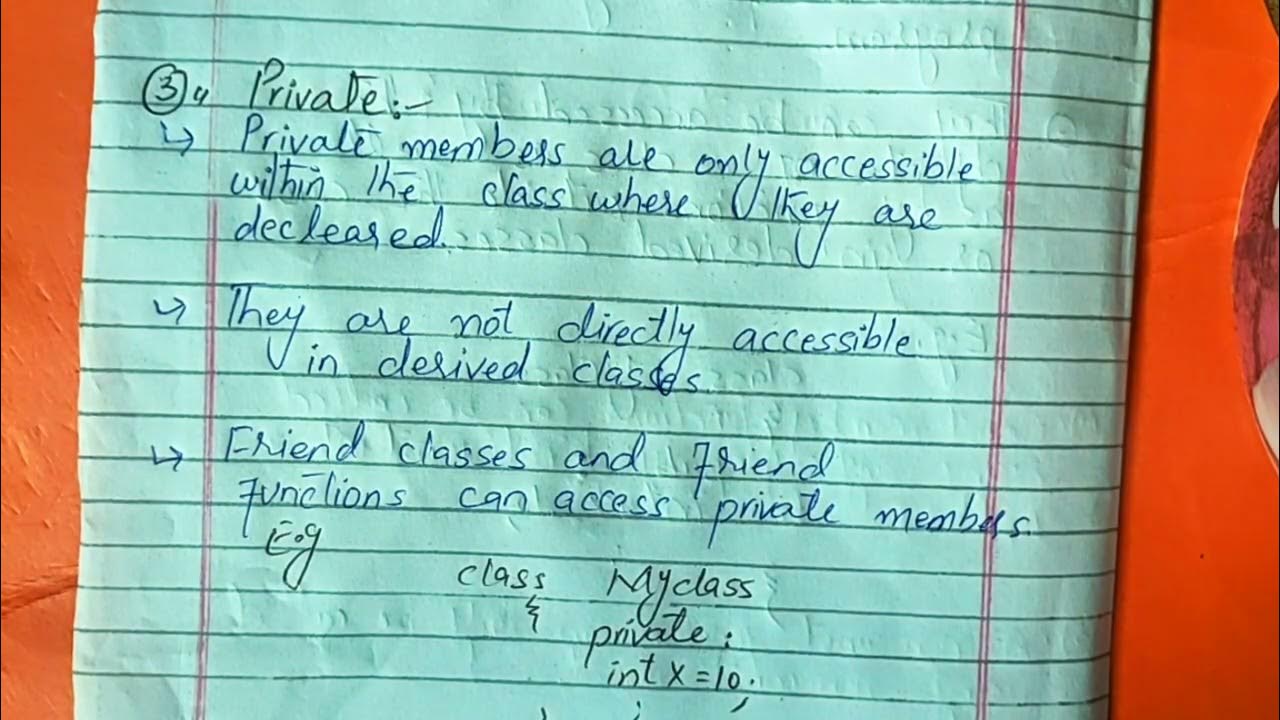 ③ Private:-
↳ Private members are only accessible
within the class where they are
decleared.
↳ They are not directly accessible
in derived classes.
↳ Friend classes and friend
functions can access private members.
E.g
class Myclass
{
private:
int x=10;